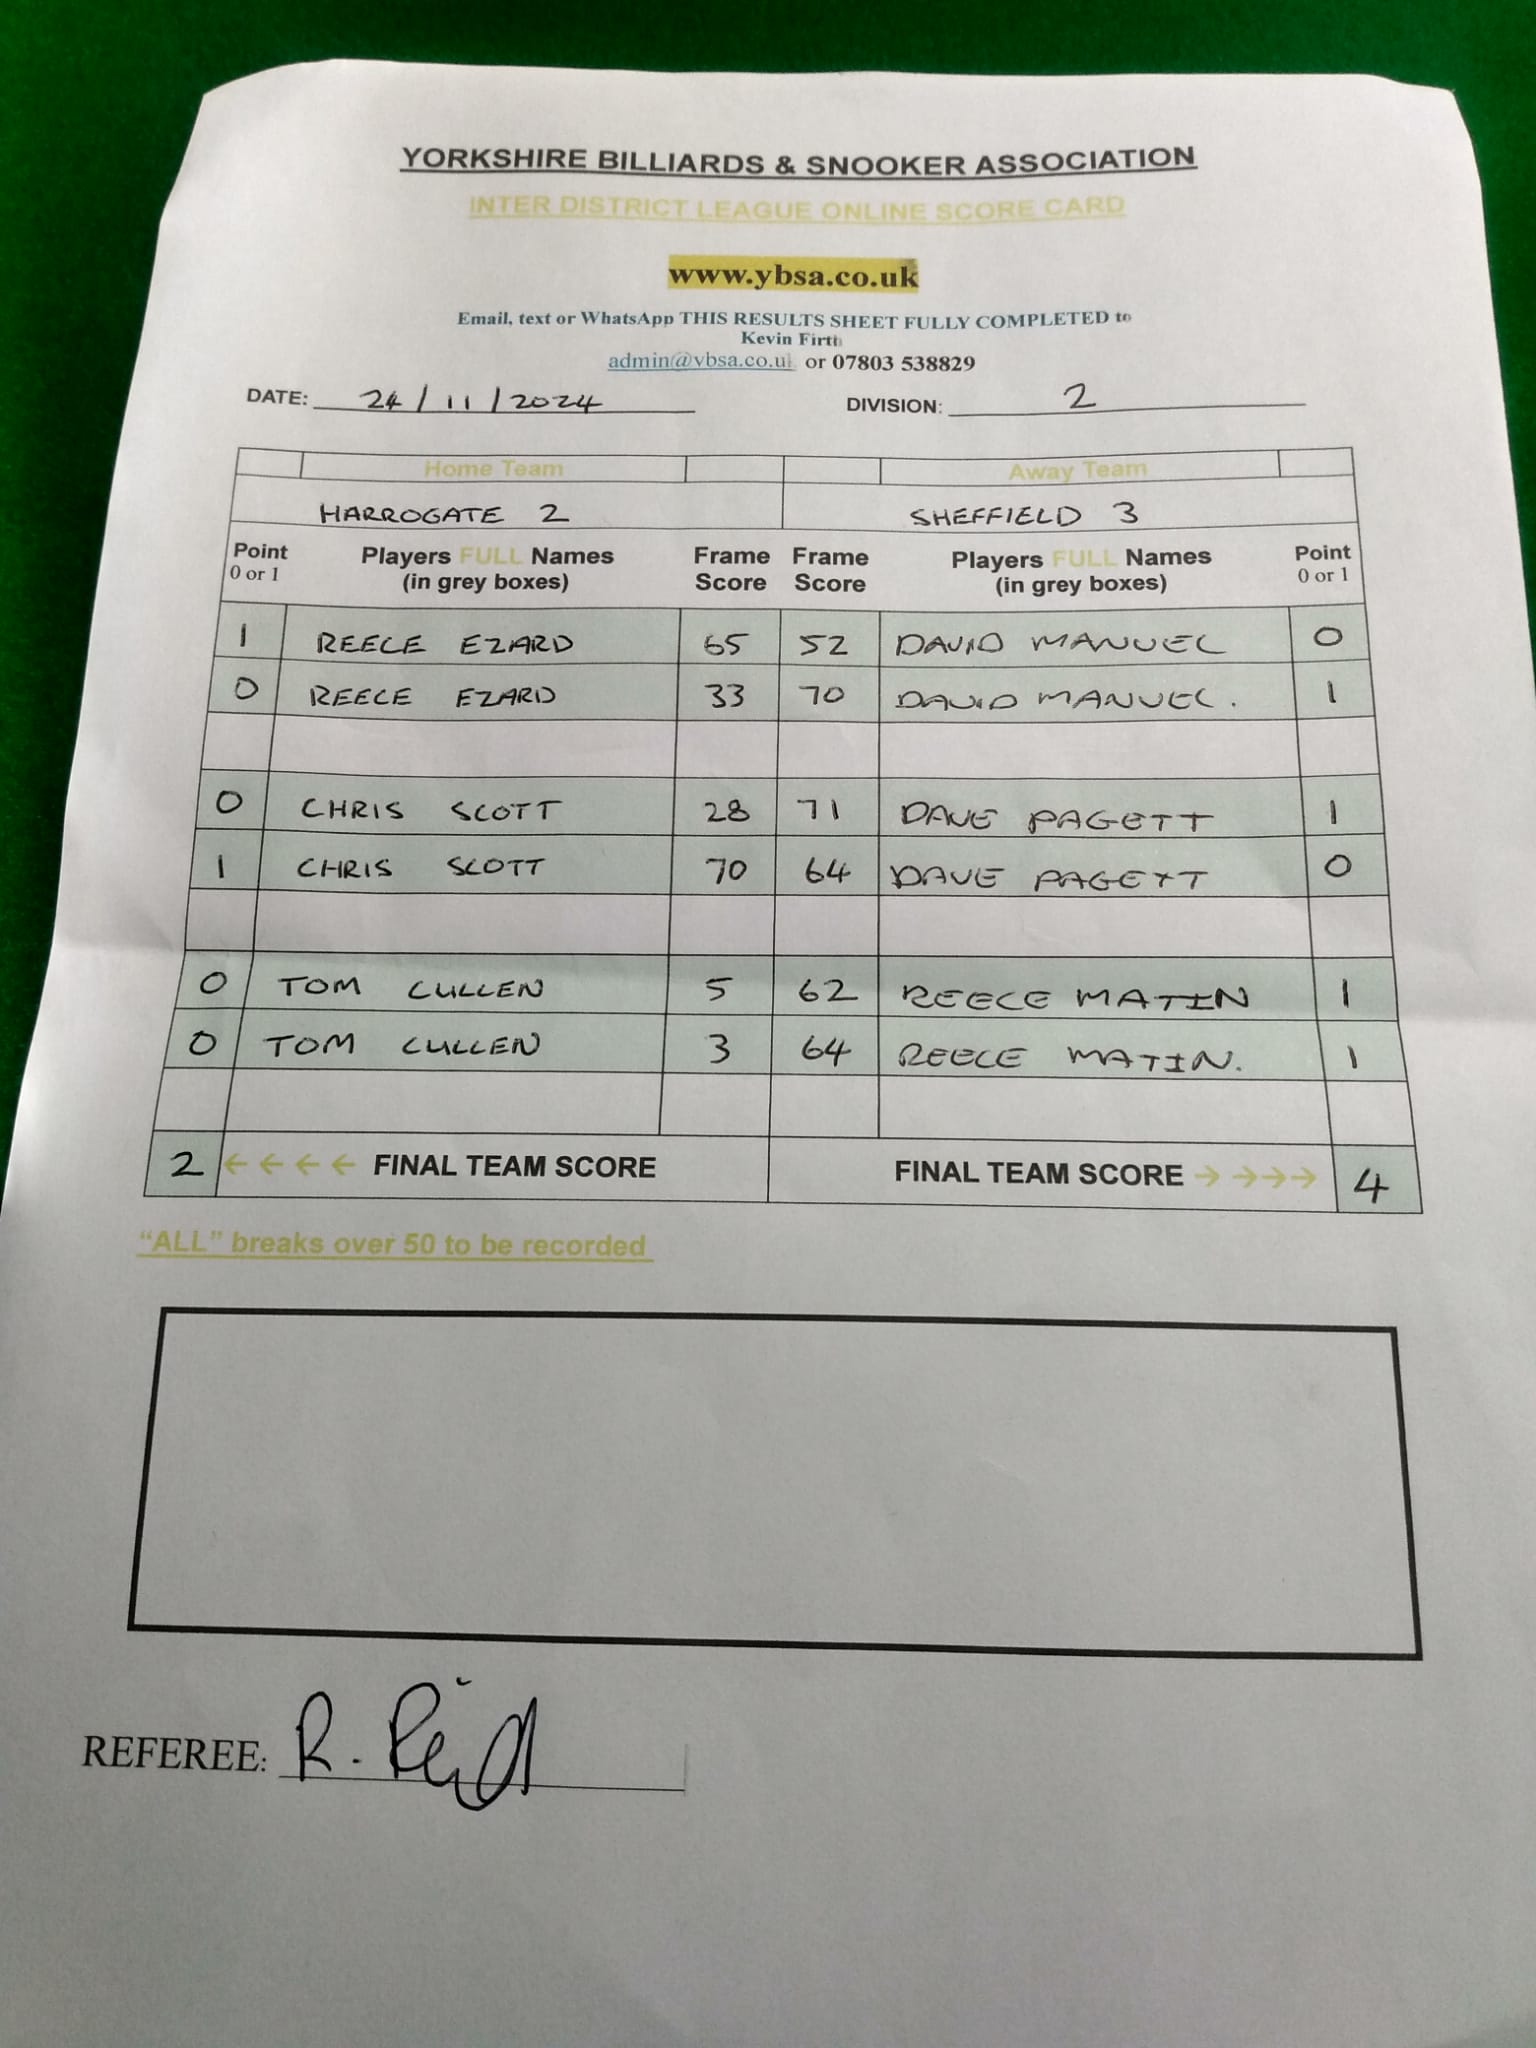 YORKSHIRE BILLIARDS & SNOOKER ASSOCIATION
INTER DISTRICT LEAGUE ONLINE SCORE CARD
www.ybsa.co.uk
Email, text or WhatsApp THIS RESULTS SHEET FULLY COMPLETED to
Kevin Firth
admin@ybsa.co.uk or 07803 538829
DATE: 24/11/2024 DIVISION: 2
Home Team Away Team
HARROGATE 2 SHEFFIELD 3
Point Players FULL Names Frame Frame Players FULL Names Point
0 or 1 (in grey boxes) Score Score (in grey boxes) 0 or 1
1 REECE EZARD 65 52 DAVID MANUEL 0
0 REECE EZARD 33 70 DAVID MANUEL. 1
0 CHRIS SCOTT 28 71 DAVE PAGETT 1
1 CHRIS SCOTT 70 64 DAVE PAGETT 0
0 TOM CULLEN 5 62 REECE MATIN 1
0 TOM CULLEN 3 64 REECE MATIN. 1
2 ←←←← FINAL TEAM SCORE FINAL TEAM SCORE →→→→ 4
“ALL” breaks over 50 to be recorded
REFEREE: R. Reid